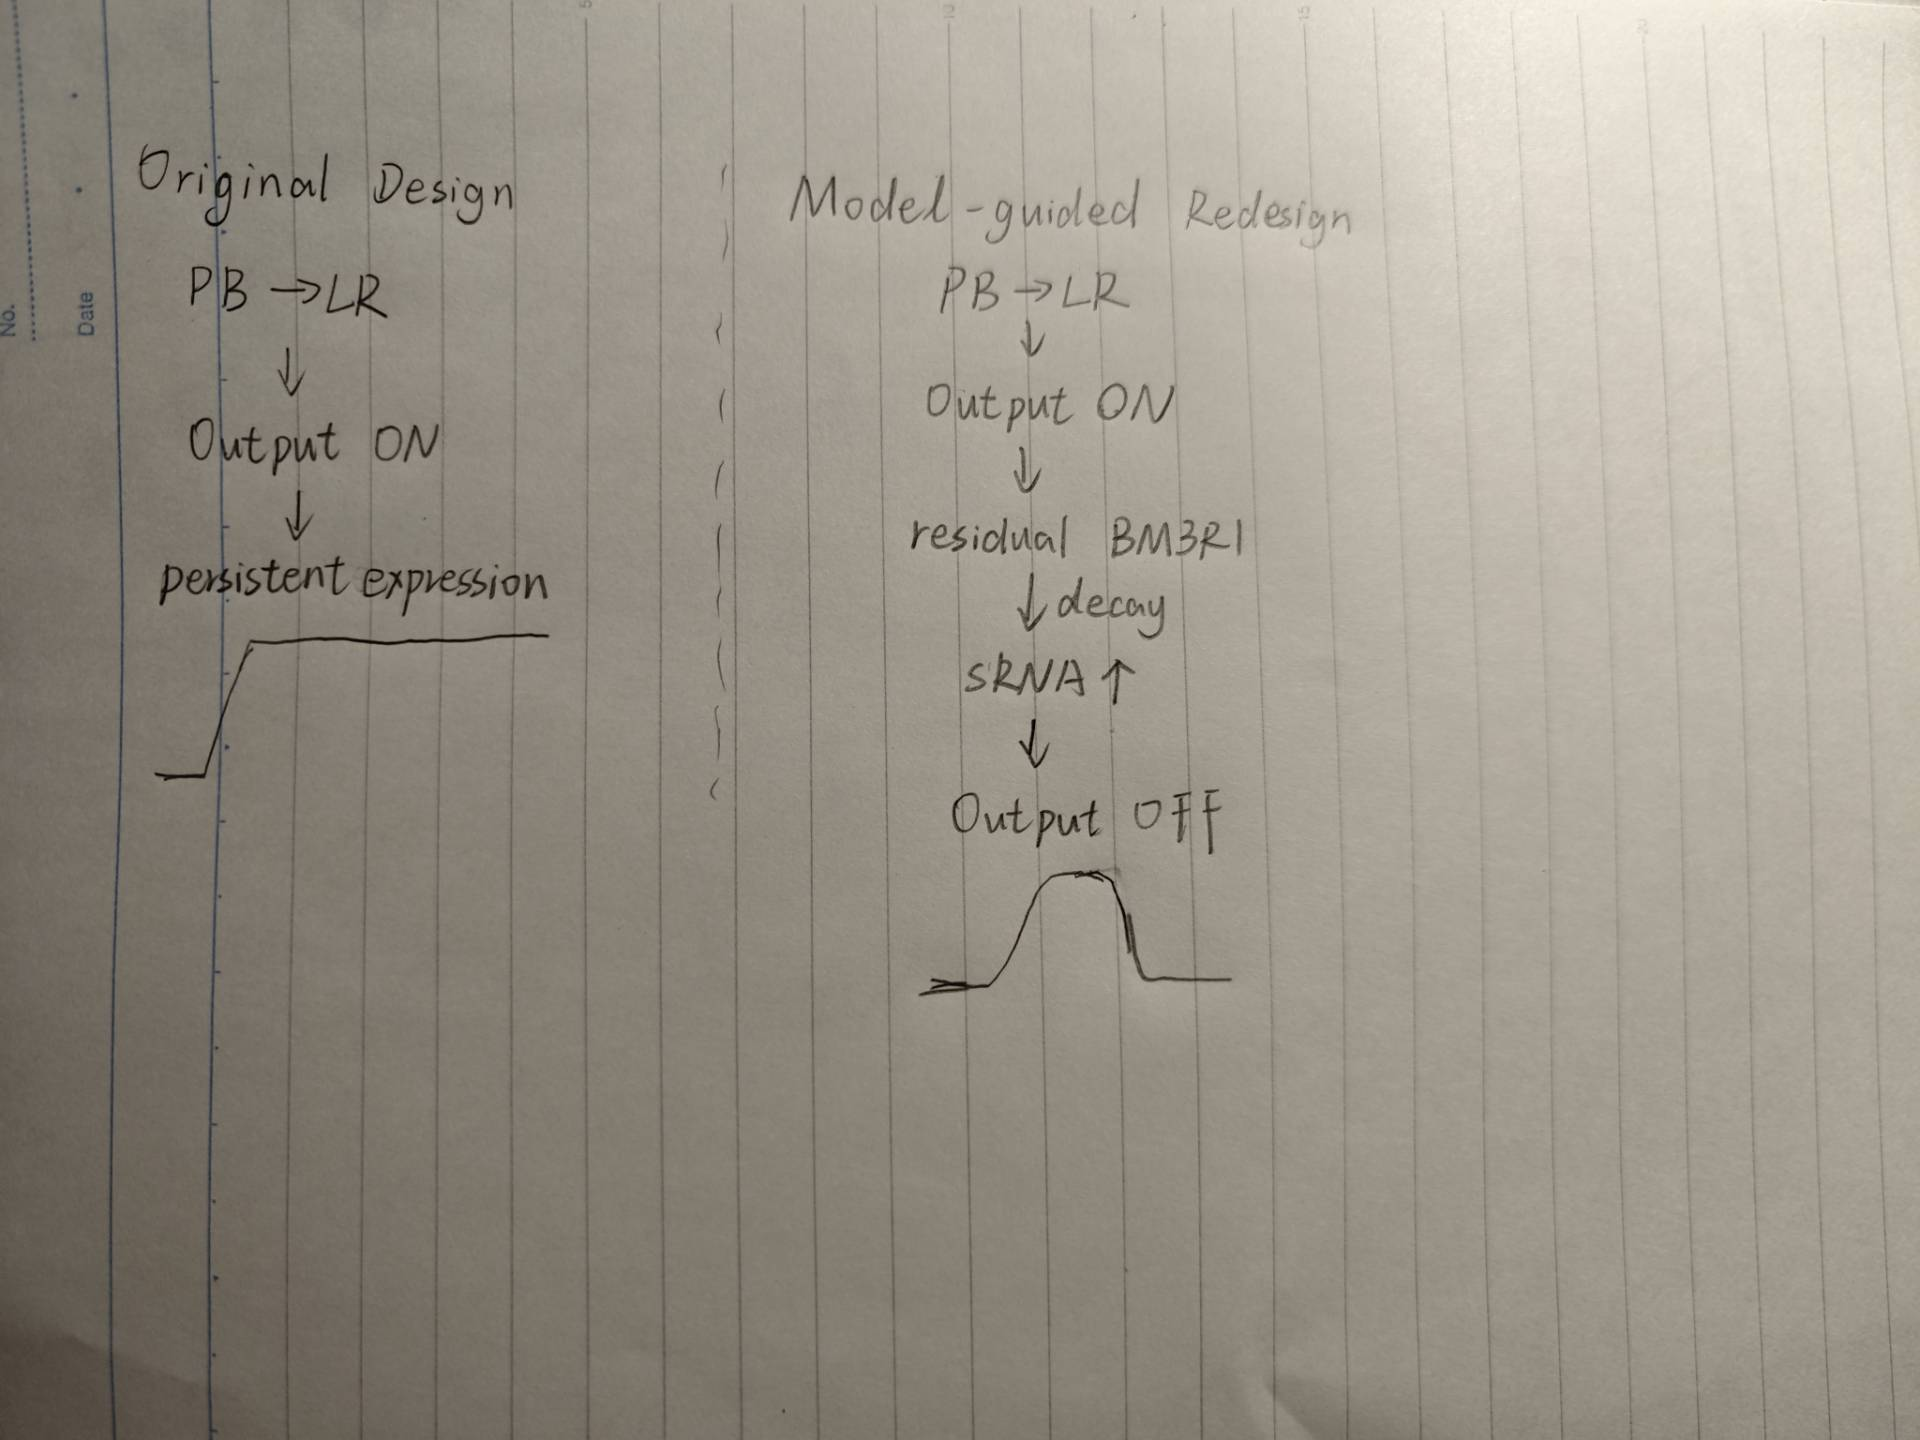 No.
Date
5
10
15
20
Original Design
PB → LR
↓
Output ON
↓
persistent expression
Model-guided Redesign
PB → LR
↓
Output ON
↓
residual BM3R1
↓ decay
sRNA ↑
↓
Output OFF